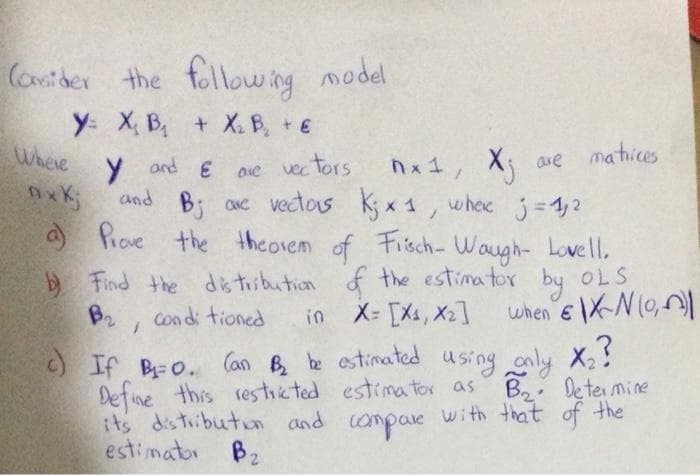 Consider the following model
y = X₁ B₁ + X₂ B₂ + ε
Where y and ε are vectors n x 1, Xj are matrices
n x Kj and Bj are vectors Kj x 1, where j = 1,2
a) Prove the theorem of Frisch-Waugh-Lovell.
b) Find the distribution of the estimator by OLS
B₂, conditioned in X = [X₁, X₂] when ε|X~N(0,Ω)
c) If B₁=0. Can B₂ be estimated using only X₂?
Define this restricted estimator as B̃₂. Determine
its distribution and compare with that of the
estimator B₂